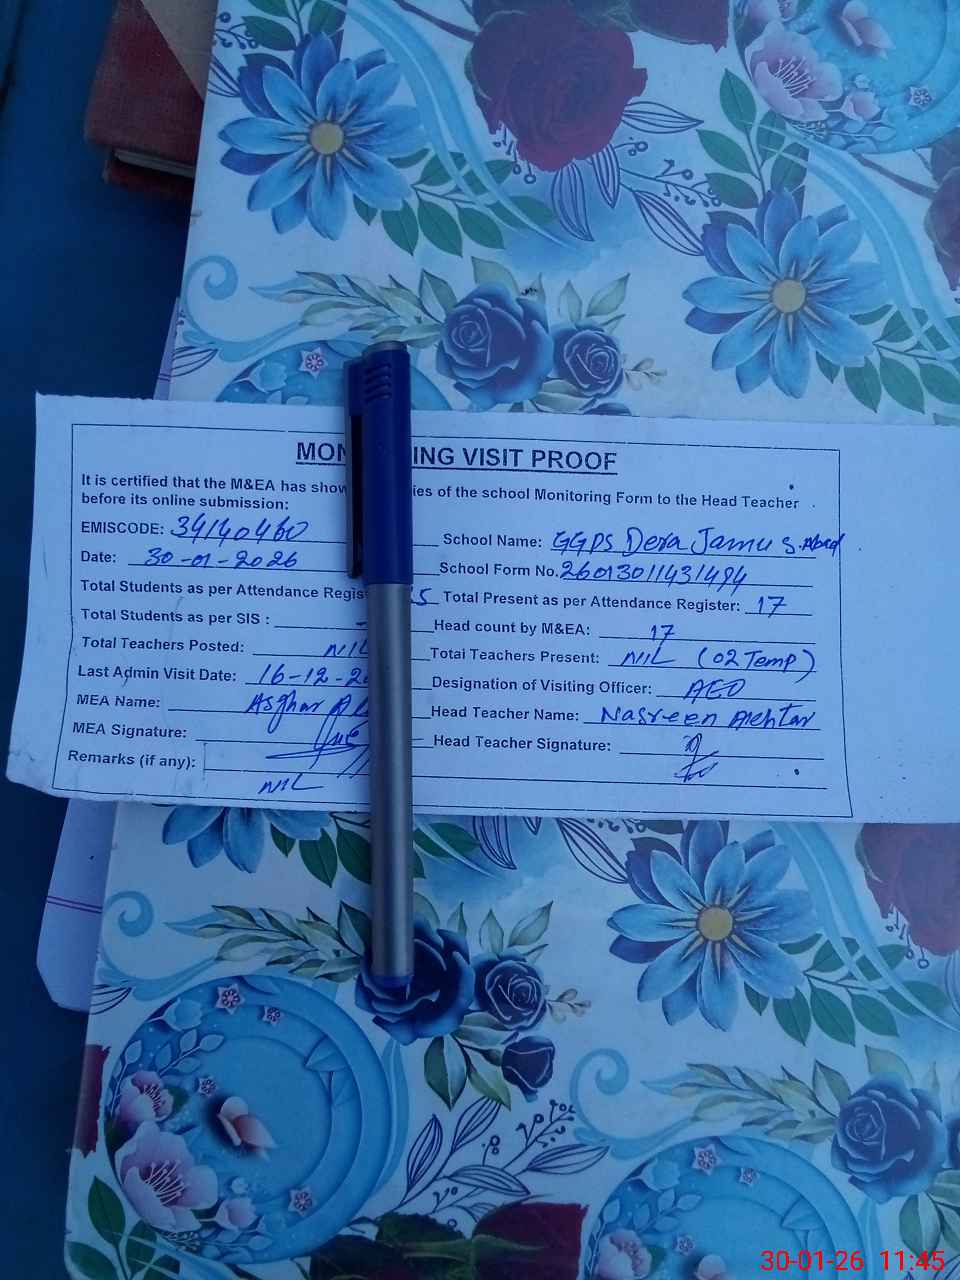 MON ING VISIT PROOF
It is certified that the M&EA has show ies of the school Monitoring Form to the Head Teacher
before its online submission:
EMISCODE: 34140460 School Name: GGPS Dera Jamu S.Abad
Date: 30-01-2026 School Form No. 26013011431494
Total Students as per Attendance Regis 5 Total Present as per Attendance Register: 17
Total Students as per SIS : Head count by M&EA: 17
Total Teachers Posted: NIL Total Teachers Present: NIL (02 Temp)
Last Admin Visit Date: 16-12-20 Designation of Visiting Officer: AEO
MEA Name: Asghar Al Head Teacher Name: Nasreen Akhtar
MEA Signature: Head Teacher Signature:
Remarks (if any): NIL
30-01-26 11:45